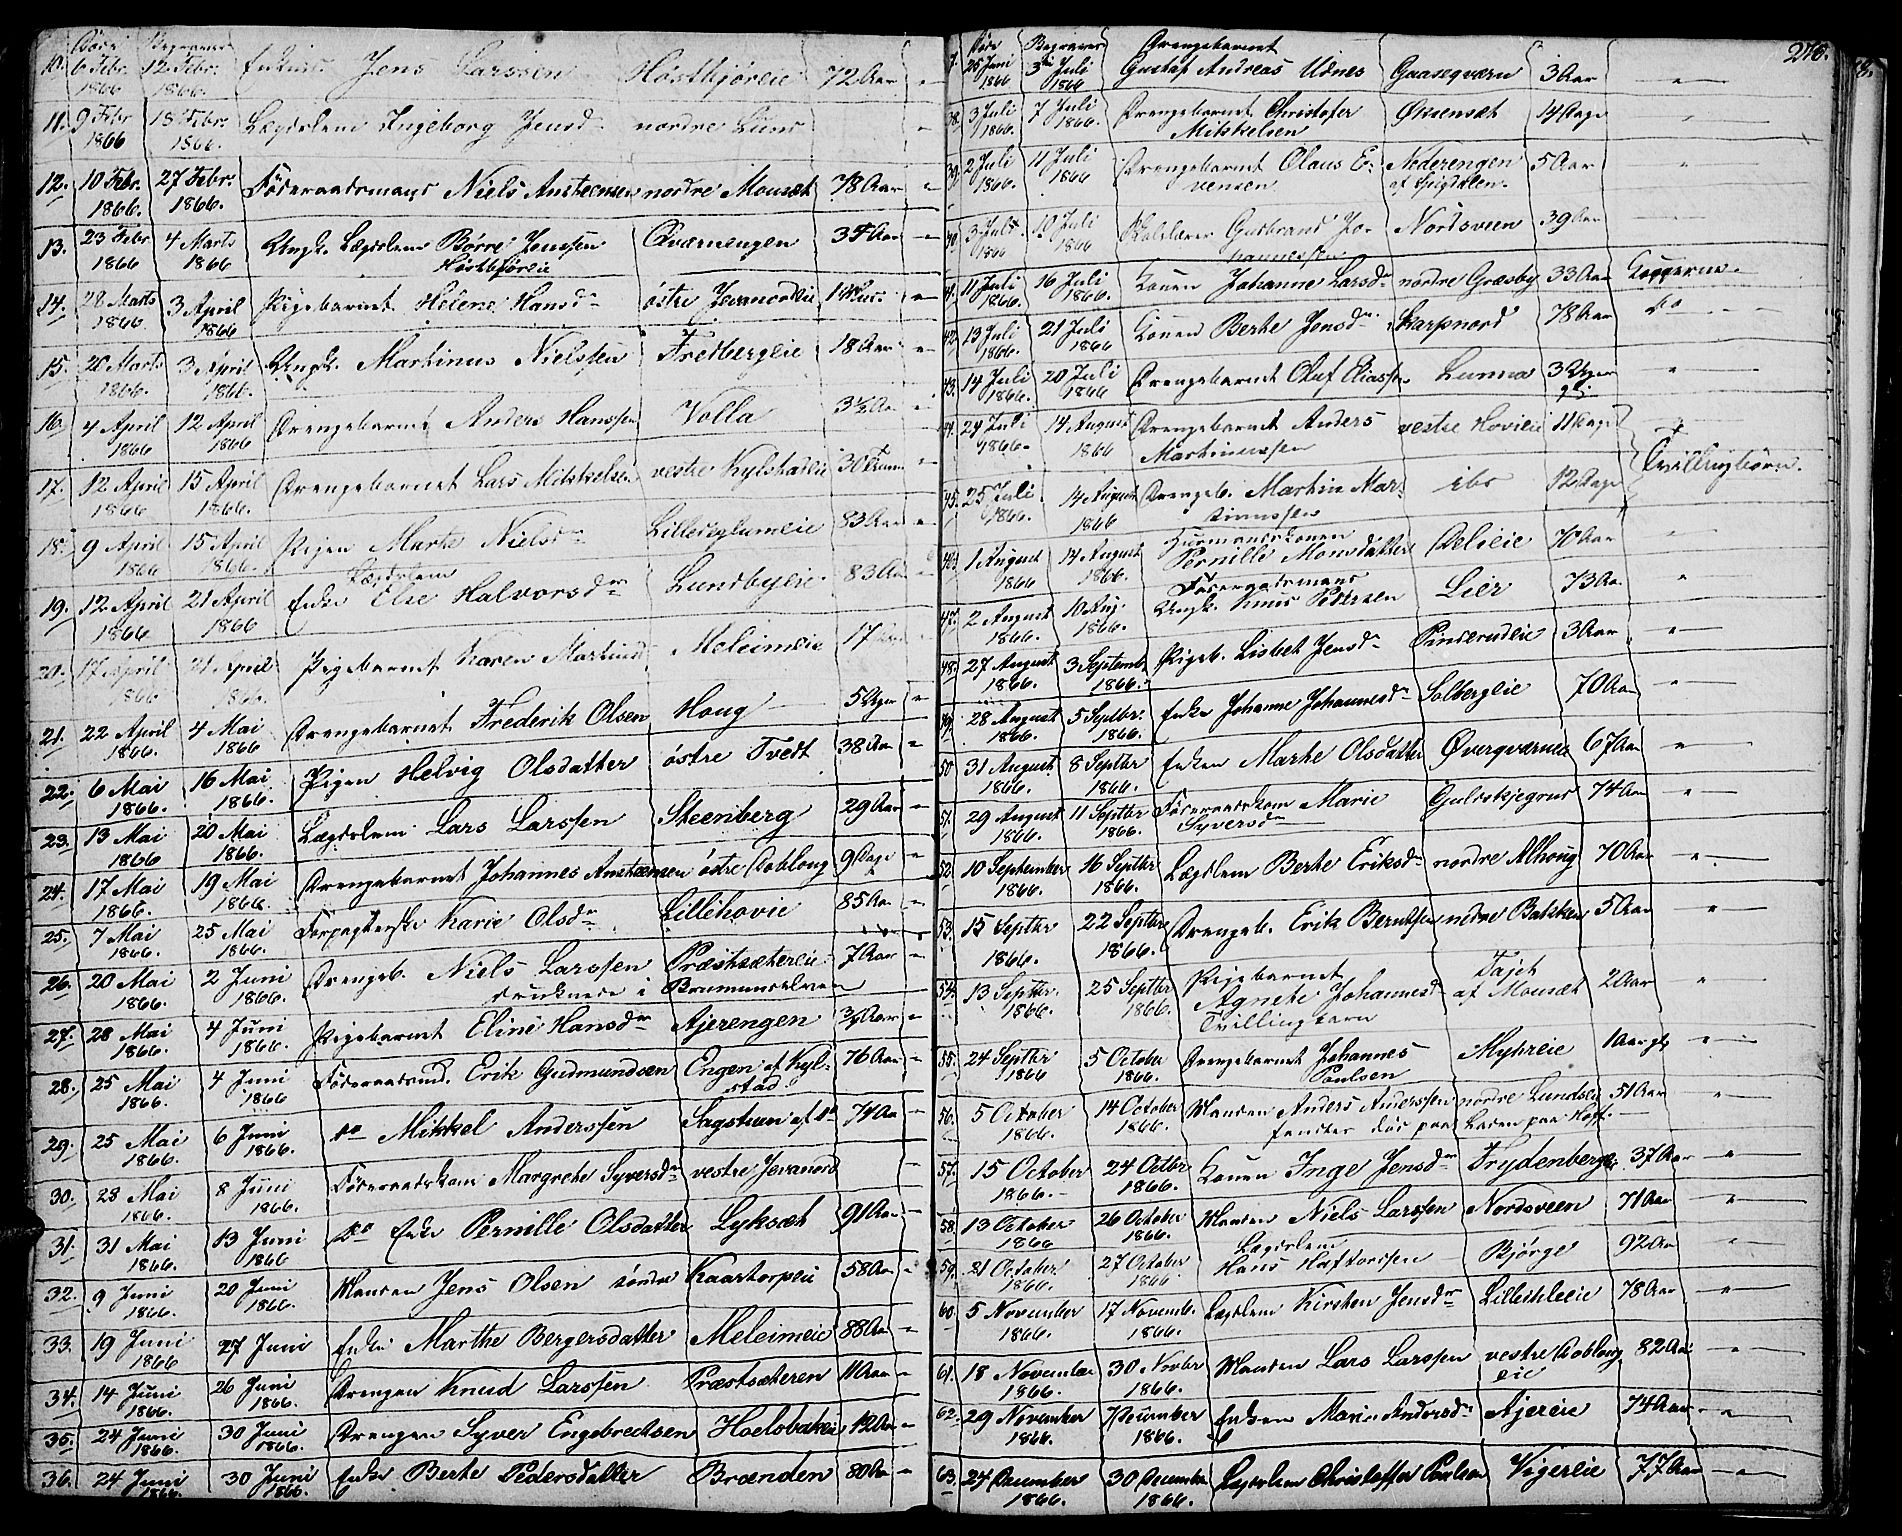 Døde Begraven
10. 6 Febr. 1866 12 Febr. 1866. Jens Larssen Høstbjøreie 72 Aar "
11. 9 Febr 1866 18 Febr. 1866. Lægdslem Ingeborg Jensd. nordre Lund "
12. 10 Febr. 1866. 27 Febr. 1866. Føderaadsmand Niels Amstensen nordre Mousæt 78 Aar "
13. 23 Febr 1866 4 Marts 1866 Ungk. Lægdslem Børre Jenssen Qværnengen Aar "
Høstbjøreie
14. 28 Marts 1866 3 April 1866 Pigebarnet Helene Hansdr østre Jevanordeie "
15. 20 Marts 1866. 3 April 1866. Ungk. Martinus Nielssen Fredbergeie 18 Aar "
16. 4 April 1866 12 April 1866 Drengebarnet Anders Hanssen Volla 3½ Aar "
17. 12 April 1866 15 April 1866. Drengebarnet Lars Mikkelsen vestre Kylstadeie "
18. 9 April 1866 15 April 1866. Pigen Marte Nielsdr 83 Aar "
Lægdslem
19. 12 April 1866 21 April 1866 Enke Else Halvorsdr Lundbyeie 83 Aar
20. 17 April 1866 21 April 1866. Pigebarnet Karen Martinsd Meleimeie 17
21. 22 April 1866. 4 Mai 1866 Drengebarnet Frederik Olsen Houg 5 Uger "
22. 6 Mai 1866. 16 Mai 1866. Pigen Helvig Olsdatter østre Tvedt 38 Aar "
23. 13 Mai 1866 20 Mai 1866. Lægdslem Lars Larssen Steenberg 29 Aar "
24. 17 Mai 1866. 19 Mai 1866. Drengebarnet Johannes Amstensen østre Aablong 9 Dage "
25. 7 Mai 1866. 25 Mai 1866. Karie Olsdr Lillehovie 85 Aar "
26. 20 Mai 1866. 2 Juni 1866. Drengeb. Niels Larssen Præstsætereie 7 Aar "
druknede i Brumundelven
27. 28 Mai 1866. 4 Juni 1866. Pigebarnet Eline Hansdr Ajerengen ¾ Aar "
28. 25 Mai 1866. 4 Juni 1866 Føderaadsmd. Erik Gudmundsen Engen af Kylstad 76 Aar "
29. 25 Mai 1866. 6 Juni 1866. do Mikkel Anderssen Sagstuen af do 74 Aar "
30. 28 Mai 1866. 8 Juni 1866. Føderaadskone Margrethe Syversdr vestre Jevanord "
31. 31 Mai 1866. 13 Juni 1866 do Enke Pernille Olsdatter Lyksæt 91 Aar "
32. 9 Juni 1866. 20 Juni 1866. Manden Jens Olsen søndre Kaastorpeie 58 Aar "
33. 19 Juni 1866 27 Juni Enke Marthe Bergersdatter Meleimeie 88 Aar "
34. 14 Juni 1866. 26 Juni 1866. Drengen Knud Larssen Præstsæteren 11 Aar "
35. 24 Juni 1866. 30 Juni 1866. Drengen Syver Engebrechsen Hoelsbakken 12 Aar "
36. 24 Juni 1866. 30 Juni 1866. Enke Berte Pedersdatter Brænden 80 Aar "
Døde Begraven 275.
7. 25 Juni 1866 3 Juli 1866 Drengebarnet Gustaf Andreas Udnes Gaaseqværn 3 Aar "
38. 3 Juli 1866. 7 Juli 1866. Drengebarnet Christofer Mikkelsen Øksensæt 14 Dage "
39. 2 Juli 1866. 11 Juli 1866 Drengebarnet Olaus Evensen Nederengen 5 Aar "
40. 3 Juli 1866 10 Juli 1866 Gudbrand Johannessen Nordsveen 39 Aar
41. 11 Juli 1866. 16 Juli 1866. Konen Johanne Larsdr nordre Græsby 33 Aar
42. 13 Juli 1866. 21 Juli 1866 Konen Berthe Jensdr Skarpnord 78 Aar do
43. 14 Juli 1866. 20 Juli 1866 Drengebarnet Oluf Eliassen Lunna 3 Uger "
44. 24 Juli 1866. 14 August 1866 Drengebarnet Anders Martinussen vestre Hovieie 11 Dage
Tvillingbørn.
45. 25 Juli 1866. 14 August 1866 Drengeb. Martin Martinussen ibd 12 Dage
46. 1 August 1866 14 August 1866. Huusmandskonen Pernille Monsdatter Delieie 70 Aar "
47. 2 August 1866. 10 Aug. 1866. Føderaadsmand Ungk. Knud Pedersen Lier 73 Aar "
48. 27 August 1866. 3 Septemb. 1866. Pigeb. Lisbet Jensdr Pinderudeie 3 Aar "
49. 28 August 1866. 5 Septbr. 1866. Enke Johanne Johannesdr Solbergeie 70 Aar "
50. 31 August 1866. 8 Septbr 1866. Enken Marthe Olsdatter Øverqværnes 67 Aar "
51. 29 August 1866. 11 Septbr 1866. Føderaadskone Marie Syversdr Guldskjegrud 74 Aar "
52. 10 September 1866. 16 Septbr 1866. Lægdslem Berthe Eriksdr nordre Alhoug 70 Aar "
53. 15 Septbr 1866. 22 Septbr 1866. Drengeb. Erik Berntsen nedre Bakken 5 Aar "
54. 13 Septbr. 1866. 25 Septbr 1866. Pigebarnet Agnethe Johannesd. af Mousæt 2 Aar "
Tvillingbarn
55. 24 Septbr 1866 5 October 1866. Drengebarnet Johannes Paulsen Myhreie 1 Aar gl. "
56. 5 October 1866. 14 October 1866. Manden Anders Anderssen nordre Lundsey 51 Aar "
fandtes død paa Laden paa Hoff.
57. 15 October 1866. 24 Octbr 1866. Konen Inge Jensdr Frydenberg 37 Aar "
58. 13 October 1866 26 October 1866. Manden Niels Larssen Nordsveen 71 Aar "
59. 21 October 1866. 27 October 1866 Lægdslem Hans Haftorssen Bjørge 92 Aar "
60. 5 November 1866. 17 Novemb. 1866. Lægdslem Kirsten Jensdr 78 Aar "
61. 18 November 1866. 30 Novbr 1866. Manden Lars Larssen vestre Aablong eie 82 Aar "
62. 29 November 1866. 7 December 1866. Enken Marie Andersdr Ajereie 74 Aar "
63. 24 December 1866. 30 December 1866. Lægdslem Christoffer Paulsen Vigereie 77 Aar "